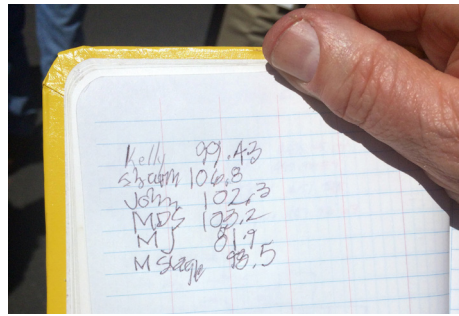 Kelly 99.43
Shawn 106.8
John 102.3
MDS 103.2
MJ 81.9
M 93.5